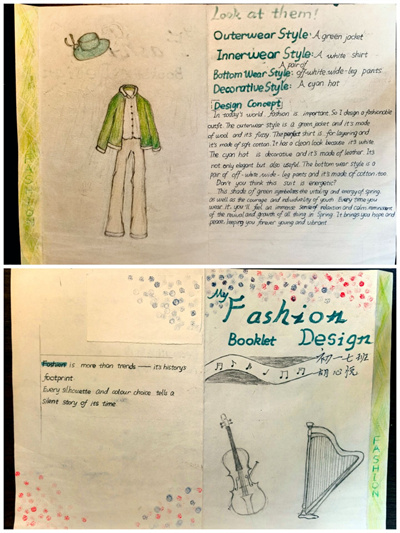 Look at them!
Outerwear Style: A green jacket
Innerwear Style: A white shirt
Bottom Wear Style: A pair of off-white wide-leg pants
Decorative Style: A cyan hat
Design Concept
In today's world fashion is important. So I design a fashionable
outfit. The outerwear style is a green jacket and it's made
of wool and it's fuzzy. The perfect shirt is for layering and
it's made of soft cotton. It has a clean look because it's white.
The cyan hat is decorative and it's made of leather. It's
not only elegant but also useful. The bottom wear style is a
pair of off-white wide-leg pants and it's made of cotton too.
Don't you think this suit is energetic?
This shade of green symbolizes the vitality and energy of spring
as well as the courage and individuality of youth. Every time you
wear it, you'll feel an immense sense of relaxation and calm, reminiscent
of the revival and growth of all thing in Spring. It brings you hope and
peace, keeping you forever young and vibrant.
FASHION
Fashion is more than trends — it's history's
footprint.
Every silhouette and colour choice tells a
silent story of its time.
My
Fashion
Booklet Design
初一七班
胡心悦
FASHION